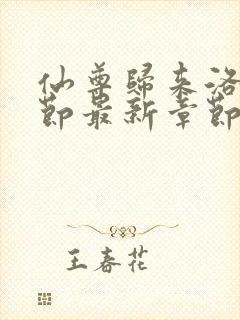 仙尊歸來洛
節最新章節
王春花